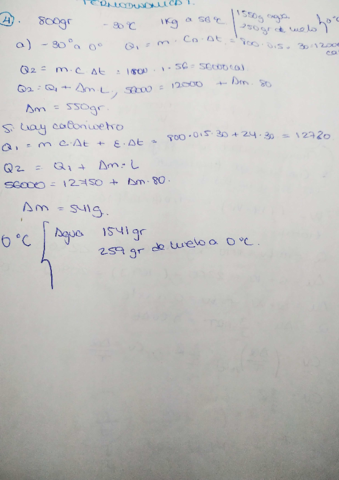 TERMODINÁMICA I.
4. 800gr -30°C 1Kg a 56°C 1550g agua
250gr de hielo } 0°C
a) -30° a 0° Q1 = m · Ca · Δt = 800 · 0.5 · 30 = 12000 cal
Q2 = m · c · Δt = 1000 · 1 · 56 = 56000 cal.
Q2 = Q1 + Δm L, 56000 = 12000 + Δm · 80
Δm = 550gr.
Si hay calorímetro
Q1 = m · c · Δt + E · Δt = 800 · 0.5 · 30 + 24 · 30 = 12720
Q2 = Q1 + Δm · L
56000 = 12750 + Δm · 80.
Δm = 541g.
0°C Agua 1541gr
259gr de hielo a 0°C.